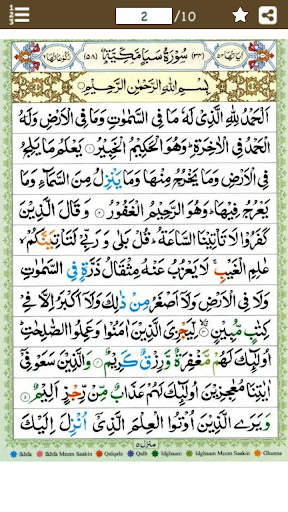 2 /10
اٰيَاتُهَا ۵۴ (۳۴) سُوْرَةُ سَبَاٍ مَكِّيَّةٌ (۵۸) رُكُوْعَاتُهَا ۶
بِسْمِ اللّٰهِ الرَّحْمٰنِ الرَّحِيْمِ
اَلْحَمْدُ لِلّٰهِ الَّذِيْ لَهٗ مَا فِي السَّمٰوٰتِ وَمَا فِي الْاَرْضِ وَلَهُ
الْحَمْدُ فِي الْاٰخِرَةِ ؕ وَهُوَ الْحَكِيْمُ الْخَبِيْرُ ۝ يَعْلَمُ مَا يَلِجُ
فِي الْاَرْضِ وَمَا يَخْرُجُ مِنْهَا وَمَا يَنْزِلُ مِنَ السَّمَآءِ وَمَا
يَعْرُجُ فِيْهَا ؕ وَهُوَ الرَّحِيْمُ الْغَفُوْرُ ۝ وَقَالَ الَّذِيْنَ
كَفَرُوْا لَا تَاْتِيْنَا السَّاعَةُ ؕ قُلْ بَلٰى وَرَبِّيْ لَتَاْتِيَنَّكُمْ ۙ
عٰلِمِ الْغَيْبِ ۚ لَا يَعْزُبُ عَنْهُ مِثْقَالُ ذَرَّةٍ فِي السَّمٰوٰتِ
وَلَا فِي الْاَرْضِ وَلَاۤ اَصْغَرُ مِنْ ذٰلِكَ وَلَاۤ اَكْبَرُ اِلَّا فِيْ
كِتٰبٍ مُّبِيْنٍ ۝ لِّيَجْزِيَ الَّذِيْنَ اٰمَنُوْا وَعَمِلُوا الصّٰلِحٰتِ ؕ
اُولٰٓئِكَ لَهُمْ مَّغْفِرَةٌ وَّرِزْقٌ كَرِيْمٌ ۝ وَالَّذِيْنَ سَعَوْ فِيْۤ
اٰيٰتِنَا مُعٰجِزِيْنَ اُولٰٓئِكَ لَهُمْ عَذَابٌ مِّنْ رِّجْزٍ اَلِيْمٌ ۝
وَيَرَى الَّذِيْنَ اُوْتُوا الْعِلْمَ الَّذِيْۤ اُنْزِلَ اِلَيْكَ
منزل ۵
Ikhfa Ikhfa Meem Saakin Qalqala Qalb Idghaam Idghaam Meem Saakin Ghunna